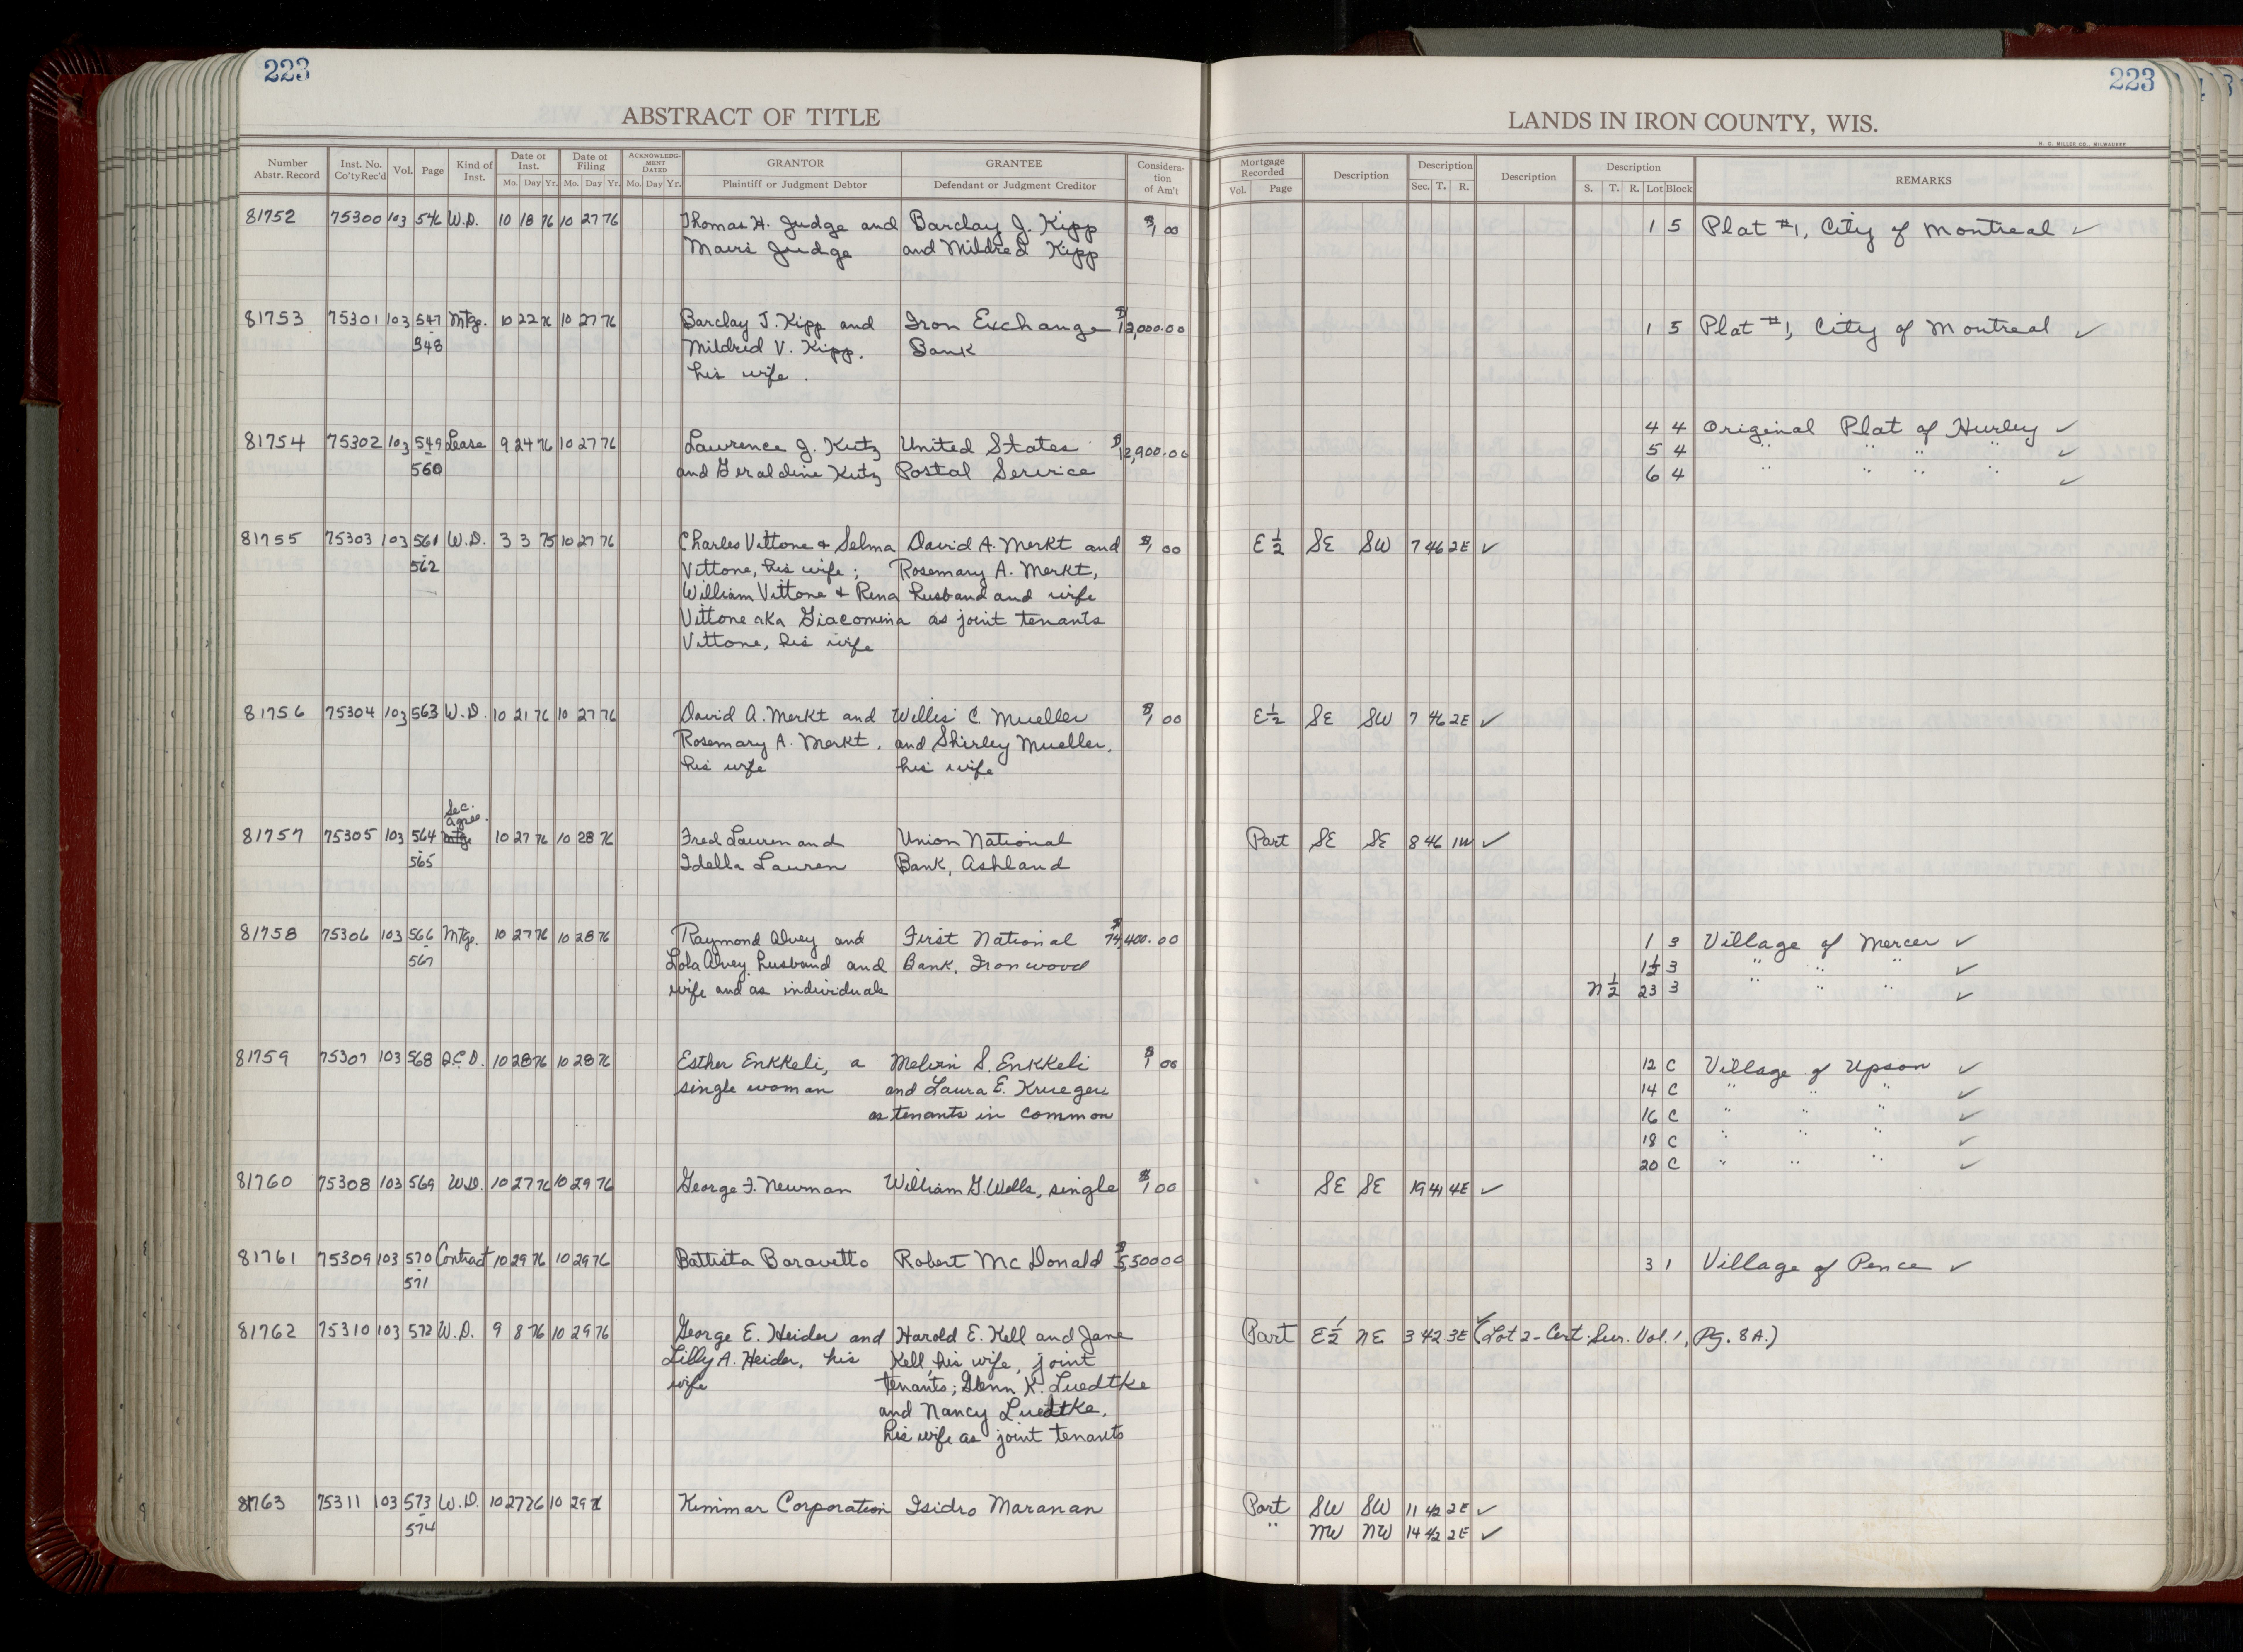 223
223
ABSTRACT OF TITLE
LANDS IN IRON COUNTY, WIS.
H. C. MILLER CO., MILWAUKEE
Number Abstr. Record | Inst. No. Co'ty Rec'd | Vol. | Page | Kind of Inst. | Date of Inst. Mo. Day Yr. | Date of Filing Mo. Day Yr. | ACKNOWLEDGMENT DATED Mo. Day Yr. | GRANTOR Plaintiff or Judgment Debtor | GRANTEE Defendant or Judgment Creditor | Consideration of Am't | Mortgage Recorded Vol. Page | Description | Description Sec. T. R. | Description | Description S. T. R. Lot Block | REMARKS
81752 75300 103 546 W.D. 10 18 76 10 27 76 Thomas H. Judge and Barclay J. Kipp $1 00 1 5 Plat #1, City of Montreal ✓
Mairi Judge and Mildred Kipp
81753 75301 103 547 Mtge. 10 22 76 10 27 76 Barclay J. Kipp and Iron Exchange $12,000.00 1 5 Plat #1, City of Montreal ✓
- 548 Mildred V. Kipp, Bank
his wife.
81754 75302 103 549 Lease 9 24 76 10 27 76 Lawrence J. Kutz United States $12,900.00 4 4 Original Plat of Hurley ✓
- 560 and Geraldine Kutz Postal Service 5 4 " " " " ✓
6 4 " " " " ✓
81755 75303 103 561 W.D. 3 3 75 10 27 76 Charles Vittone + Selma David A. Merkt and $1 00 E ½ SE SW 7 46 2E ✓
- 562 Vittone, his wife; Rosemary A. Merkt,
William Vittone + Rena husband and wife
Vittone aka Giacomina as joint tenants
Vittone, his wife
81756 75304 103 563 W.D. 10 21 76 10 27 76 David A. Merkt and Willis C. Mueller $1 00 E ½ SE SW 7 46 2E ✓
Rosemary A. Merkt, and Shirley Mueller,
his wife his wife
Sec. Agree.
81757 75305 103 564 Mtge 10 27 76 10 28 76 Fred Lauren and Union National Part SE SE 8 46 1W ✓
- 565 Idella Lauren Bank, Ashland
81758 75306 103 566 Mtge. 10 27 76 10 28 76 Raymond Alvey and First National $74,400.00 1 3 Village of Mercer ✓
- 567 Lola Alvey, husband and Bank, Ironwood 1½ 3 " " " ✓
wife and as individuals N ½ 23 3 " " " ✓
81759 75307 103 568 Q.C.D. 10 28 76 10 28 76 Esther Enkkeli, a Melvin S. Enkkeli $1 00 12 C Village of Upson ✓
single woman and Laura E. Krueger 14 C " " " ✓
as tenants in common 16 C " " " ✓
18 C " " " ✓
20 C " " " ✓
81760 75308 103 569 W.D. 10 27 76 10 29 76 George F. Newman William G. Wells, single $1 00 SE SE 19 41 4E ✓
81761 75309 103 570 Contract 10 29 76 10 29 76 Battista Baravetto Robert McDonald $5,500 00 3 1 Village of Pence ✓
- 571
81762 75310 103 572 W.D. 9 8 76 10 29 76 George E. Heider and Harold E. Kell and Jane Part E ½ NE 3 42 3E ✓ (Lot 2 - Cert. Sur. Vol. 1, Pg. 8A.)
Lilly A. Heider, his Kell, his wife, joint
wife tenants; Glenn K. Luedtke
and Nancy Luedtke,
his wife as joint tenants
81763 75311 103 573 W.D. 10 27 76 10 29 76 Kimmar Corporation Isidro Maranan Part SW SW 11 42 2E ✓
- 574 " NW NW 14 42 2E ✓